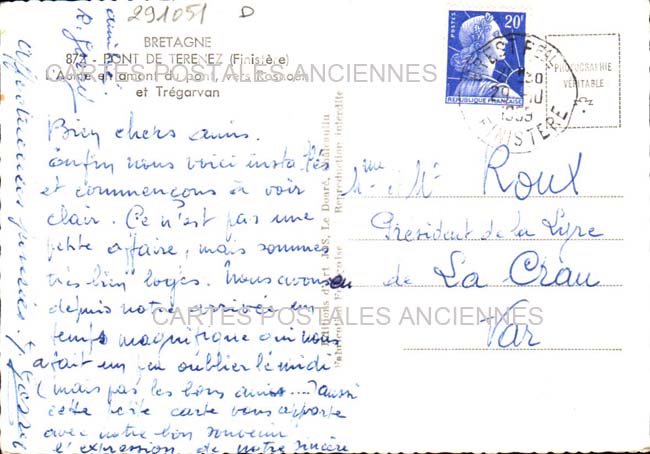 291051 D
BRETAGNE
874 - PONT DE TERENEZ (Finistère)
L'Aulne en amont du pont, vers Rosnoën
et Trégarvan
CARTES POSTALES ANCIENNES
Bien chers amis.
Enfin nous voici installés
et commençons à voir
clair. Ce n'est pas une
petite affaire, mais sommes
très bien logés. Nous avons eu
depuis notre arrivée un
temps magnifique qui nous
a fait un peu oublier le midi
(mais pas les bons amis....) aussi
cette petite carte vous apporte
avec notre bon souvenir
l'expression de notre sincère
amitié
Editions d'Art JOS, Le Doaré, Châteaulin
Fabrication Française Reproduction interdite
POSTES 20F
REPUBLIQUE FRANÇAISE
BREST
29 - 10
1959
FINISTERE
PHOTOGRAPHIE
VÉRITABLE
Mme et Mr Roux
Président de la Lyre
de La Crau
Var
CARTES POSTALES ANCIENNES